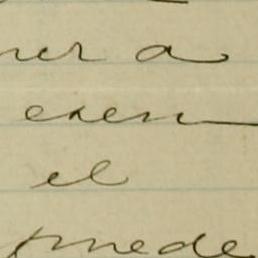 ner a
exen
el
puede